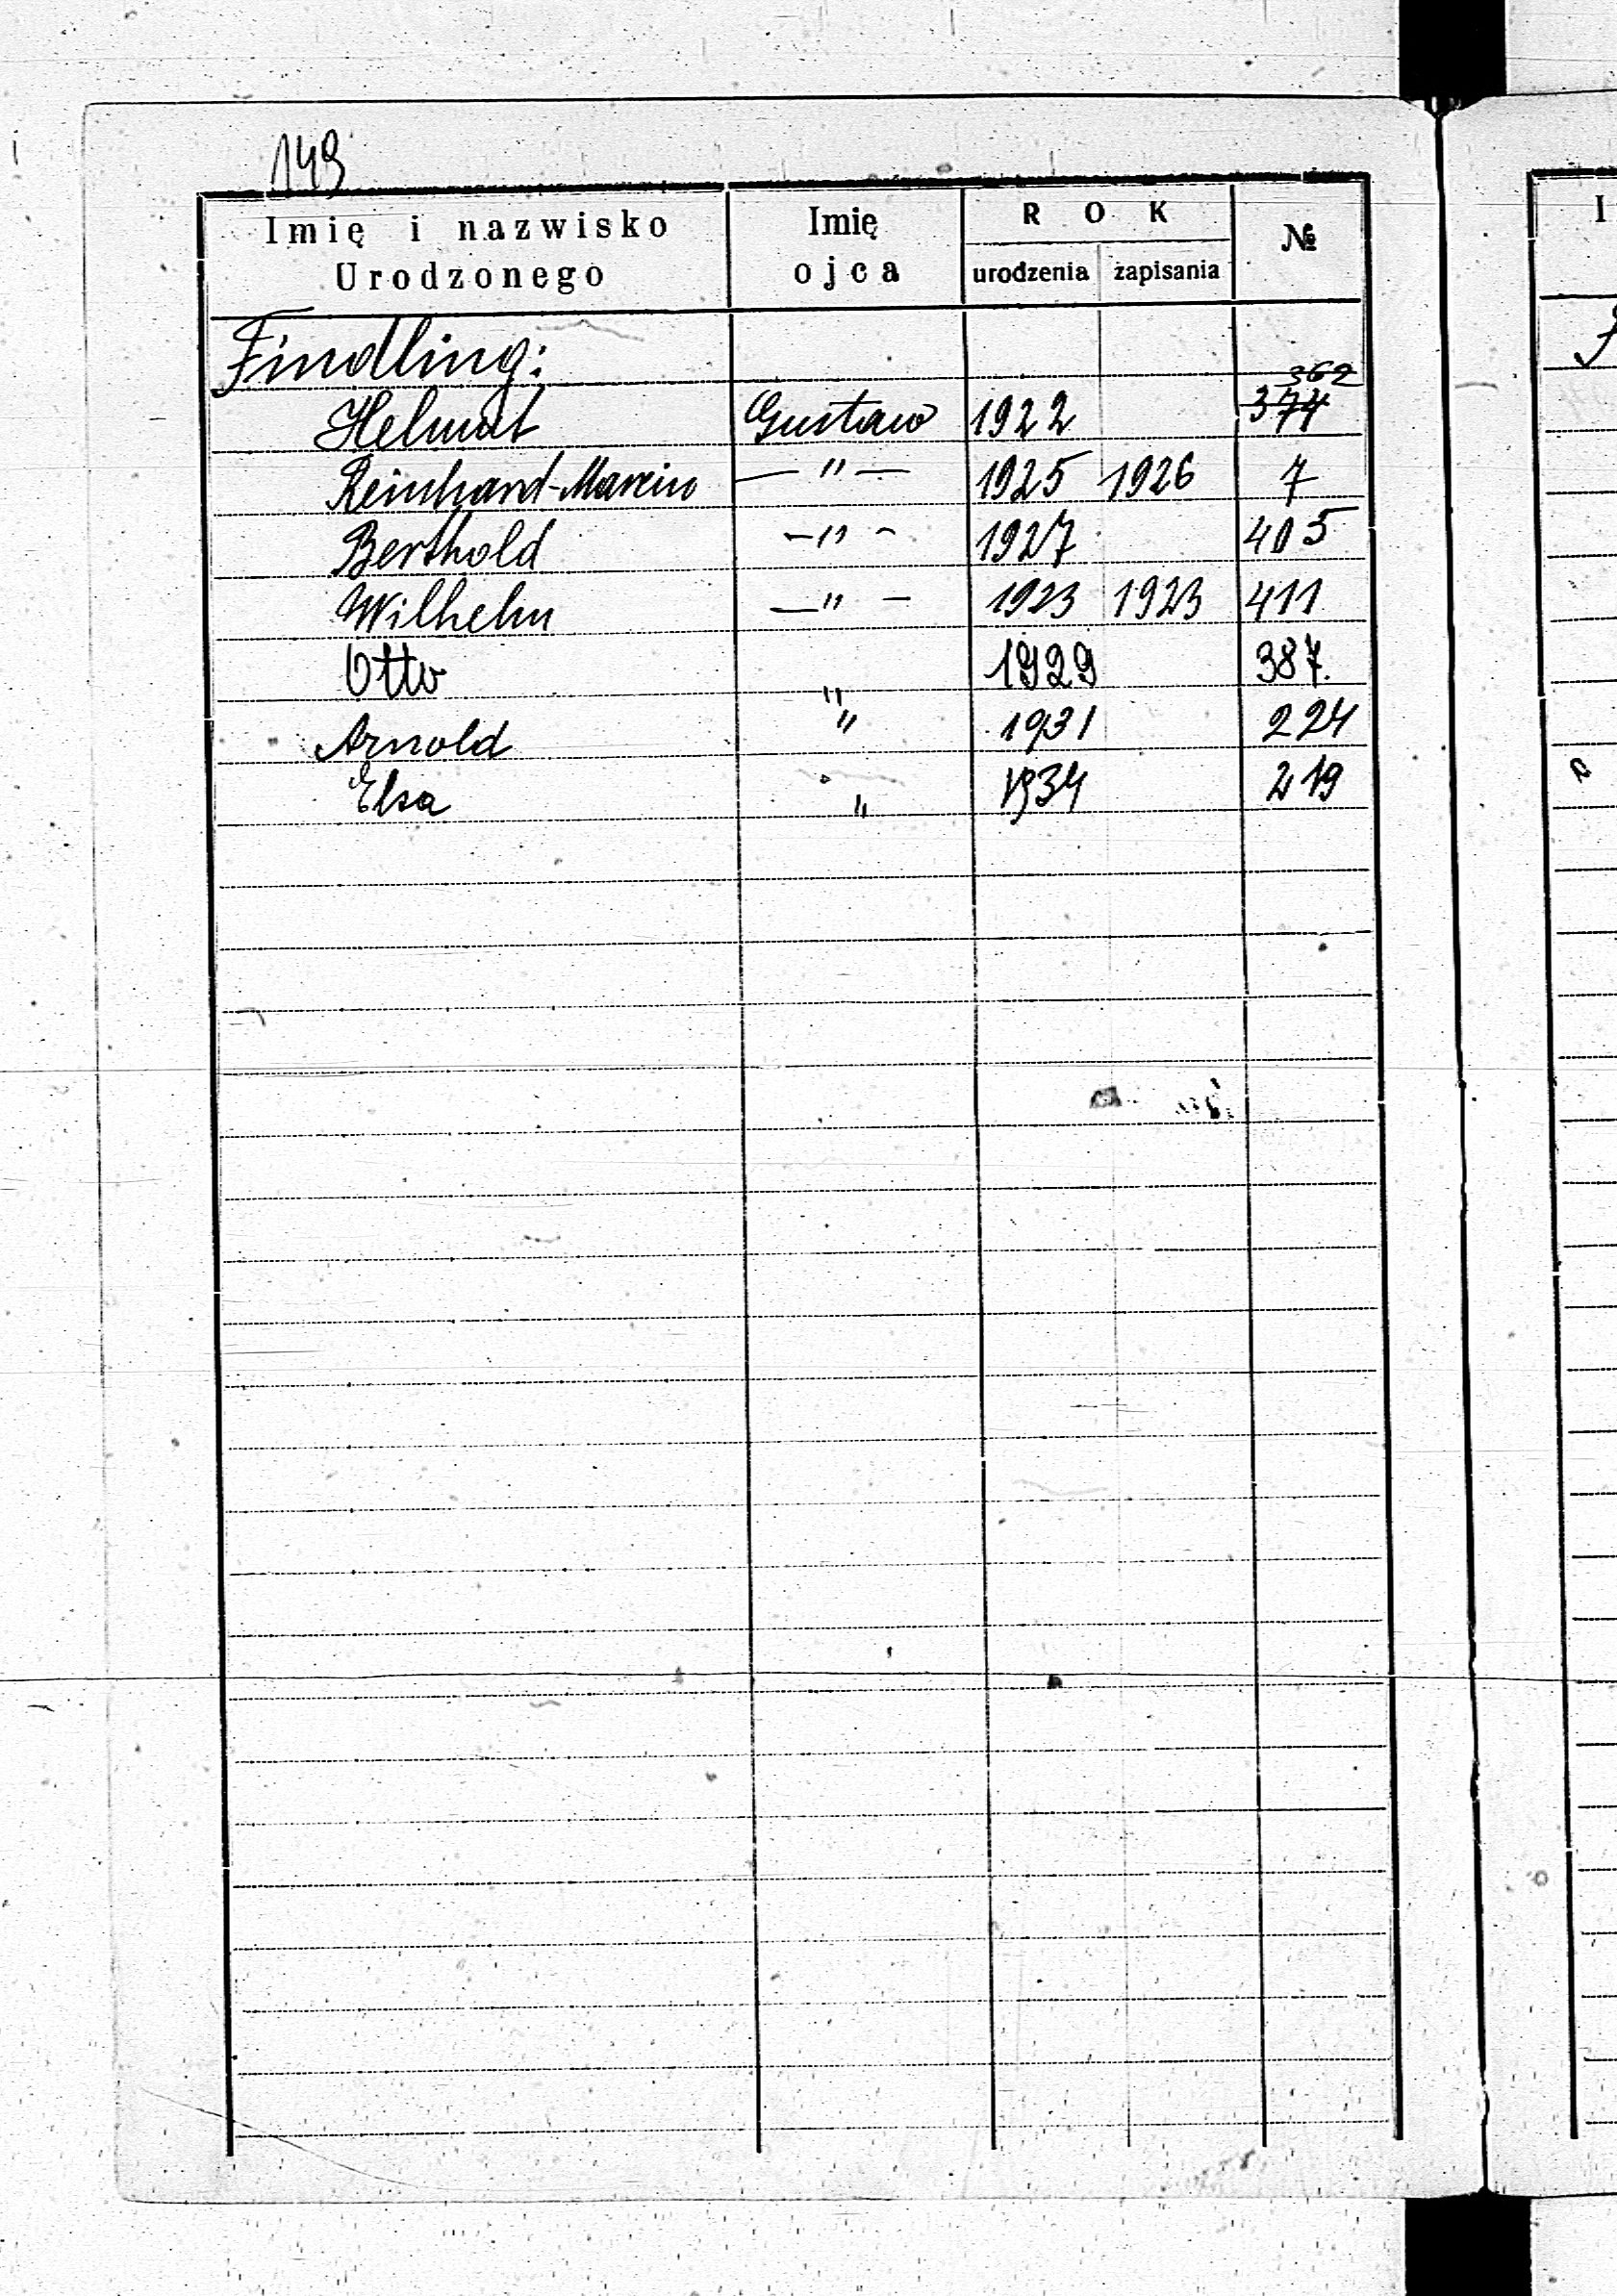 149
Imię i nazwisko Urodzonego | Imię ojca | ROK urodzenia | zapisania | №
Findling:
362
Helmut Gustaw 1922 374
Reinhard-Marcin —"— 1925 1926 7
Berthold —"— 1927 405
Wilhelm —"— 1923 1923 411
Otto " 1929 387.
Arnold " 1931 224
Elsa " 1934 219